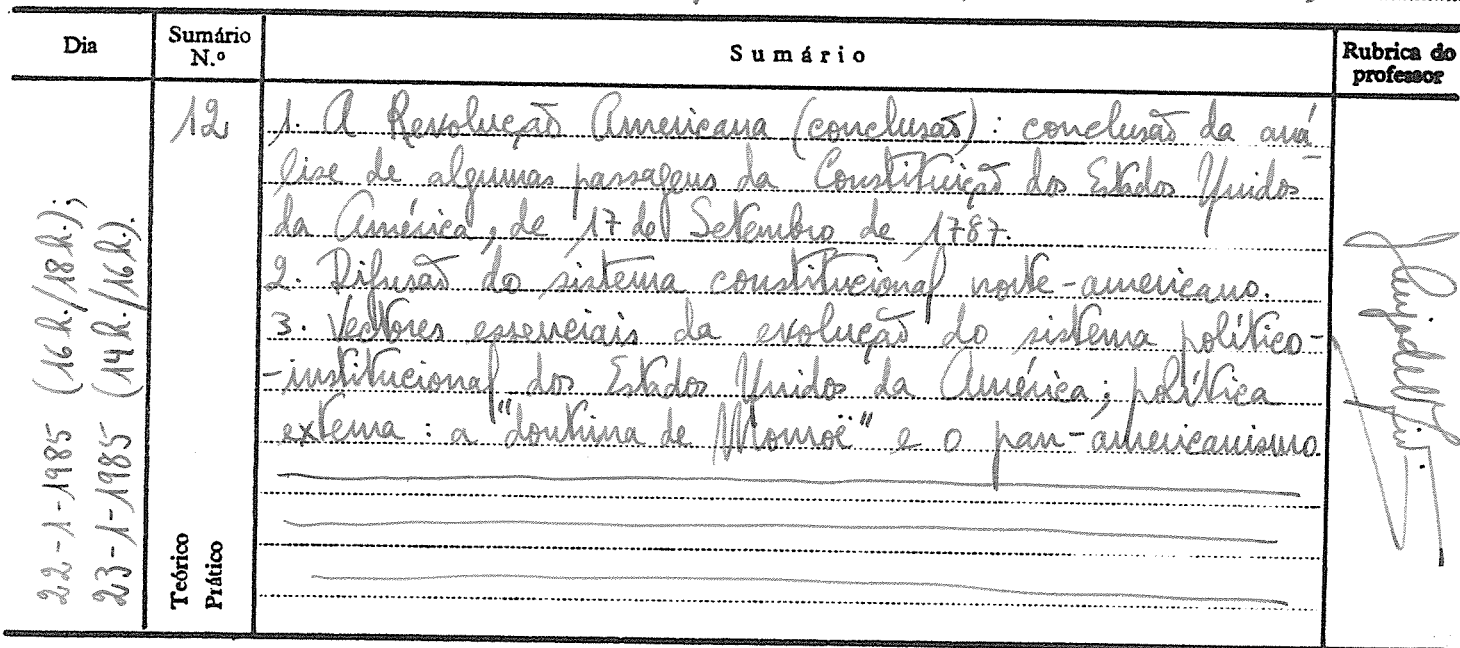 Dia
Sumário N.º
Sumário
Rubrica do professor
22-1-1985 (16h./18h.);
23-1-1985 (14h./16h.).
12
Teórico
Prático
1. A Revolução Americana (conclusão): conclusão da aná-
lise de algumas passagens da Constituição dos Estados Unidos
da América, de 17 de Setembro de 1787.
2. Difusão do sistema constitucional norte-americano.
3. Vectores essenciais da evolução do sistema político-
-institucional dos Estados Unidos da América; política
externa: a "doutrina de Monroë" e o pan-americanismo